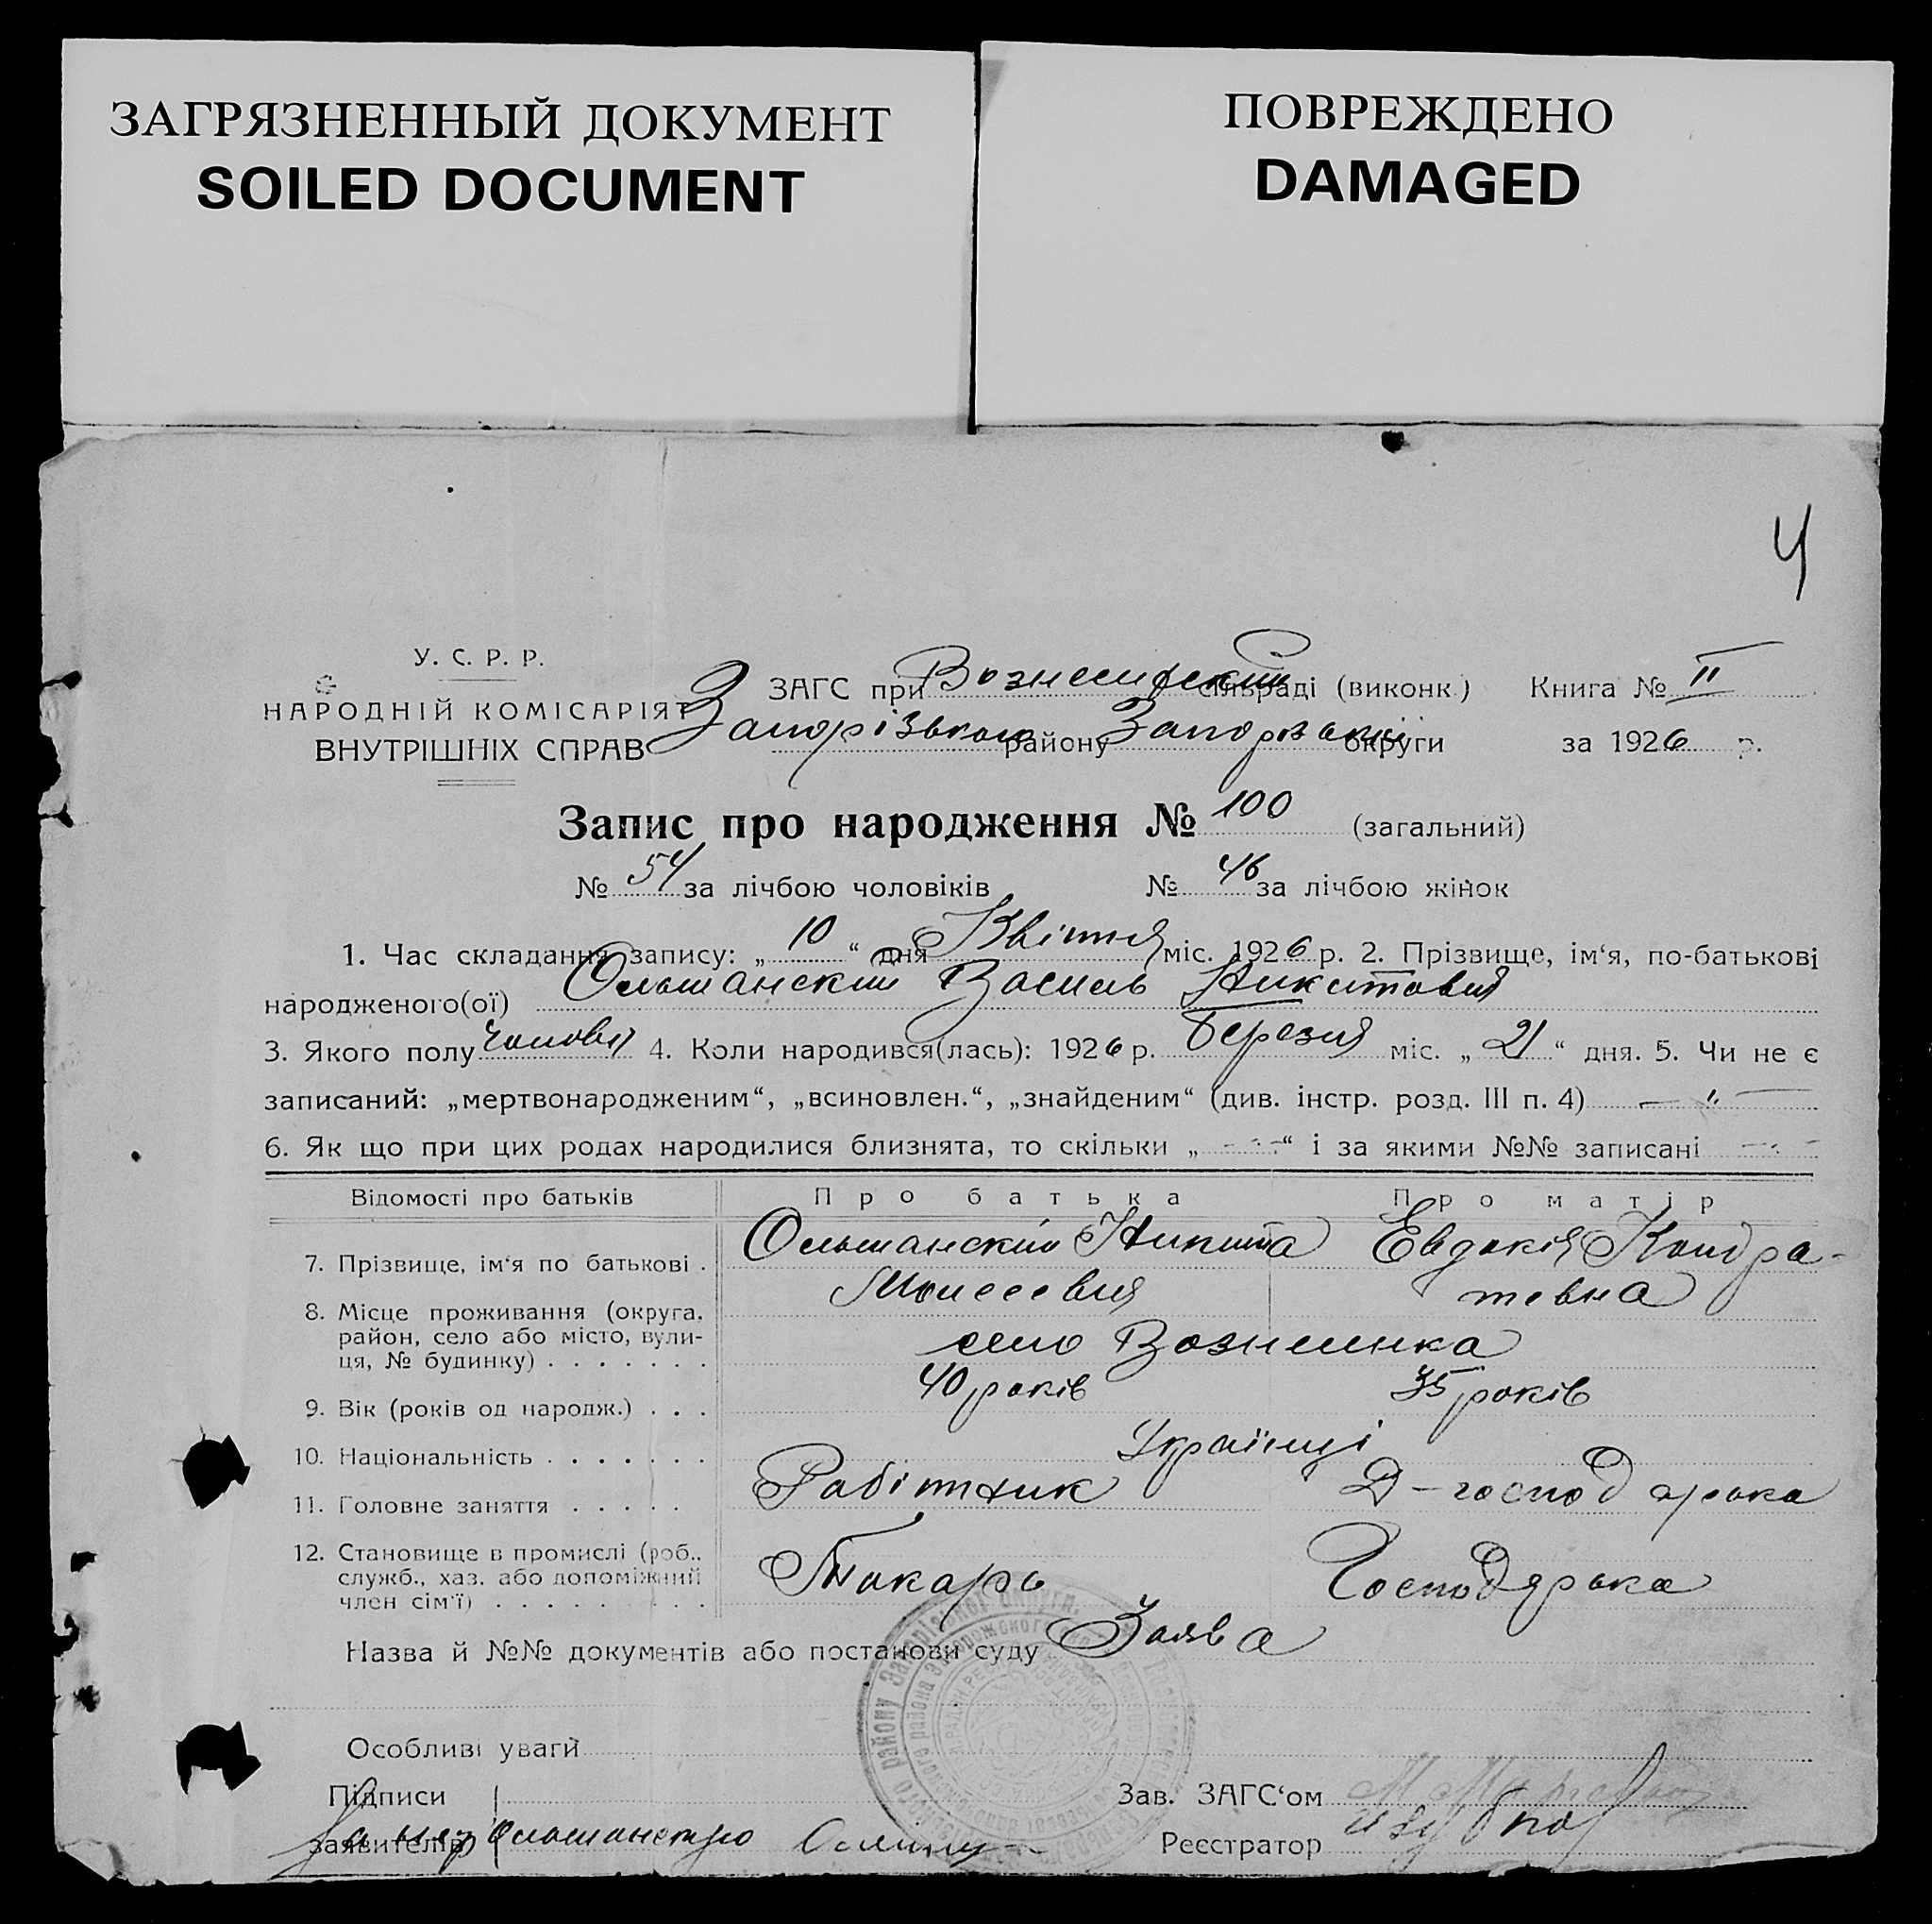 ЗАГРЯЗНЕННЫЙ ДОКУМЕНТ
SOILED DOCUMENT
ПОВРЕЖДЕНО
DAMAGED
4
У. С. Р. Р.
НАРОДНІЙ КОМІСАРІЯТ
ВНУТРІШНІХ СПРАВ
ЗАГС при Вознесенскій сільраді (виконк.) Книга № II
Запорізького району Запорізької округи за 1926 р.
Запис про народження № 100 (загальний)
№ 54 за лічбою чоловіків № 46 за лічбою жінок
1. Час складання запису: „ 10 “ дня Квітня міс. 1926 р. 2. Прізвище, ім‘я, по-батькові
народженого(ої) Ольшанский Василь Никитович
3. Якого полу чолові 4. Коли народився(лась): 1926 р. Березня міс. „ 21 “ дня. 5. Чи не є
записаний: „мертвонародженим“, „всиновлен.“, „знайденим“ (див. інстр. розд. III п. 4) — „ —
6. Як що при цих родах народилися близнята, то скільки „ - „ - “ і за якими №№ записані — „ -
Відомості про батьків Про батька Про матір
7. Прізвище, ім‘я по батькові . Ольшанский Никита Моисеевич Евдокія Кондра-
тевна
8. Місце проживання (округа,
район, село або місто, вули-
ця, № будинку) . . . . . . . село Вознесенка
9. Вік (років од народж.) . . . 40 років 35 років
10. Національність . . . . . . . Українці
11. Головне заняття . . . . . Робітник Д-господарка
12. Становище в промислі (роб..
служб., хаз. або допоміжний
член сім‘ї) . . . . . . . . . Токарь Господарька
Назва й №№ документів або постанови суду Заява
Особливі уваги
Підписи
заявителів Ольшанского
Зав. ЗАГС‘ом
Реєстратор